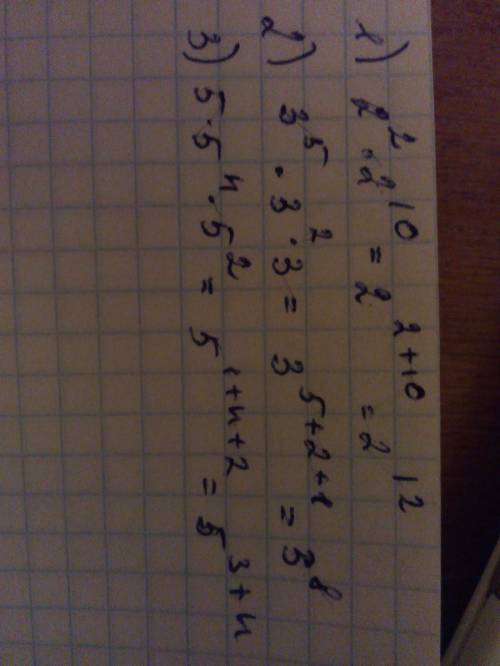 1) 2² · 2¹⁰ = 2²⁺¹⁰ = 2¹²
2) 3⁵ · 3² · 3 = 3⁵⁺²⁺¹ = 3⁸
3) 5 · 5ⁿ · 5² = 5¹⁺ⁿ⁺² = 5³⁺ⁿ